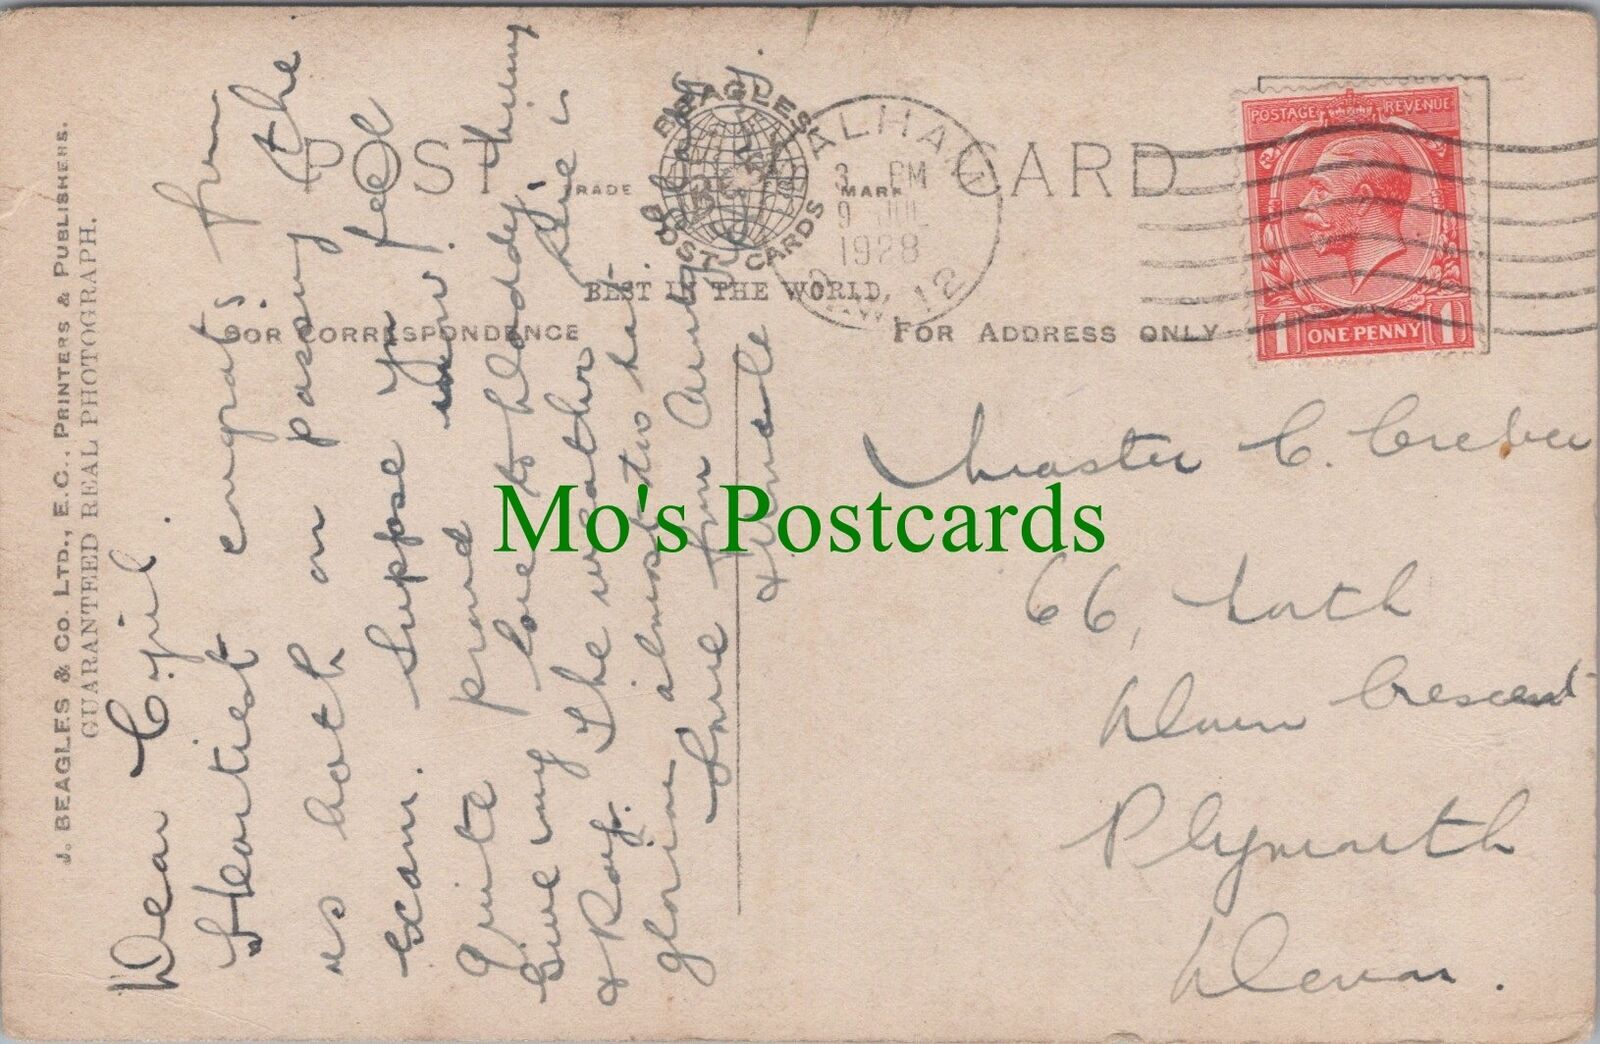 J. BEAGLES & CO. LTD., E.C., PRINTERS & PUBLISHERS.
GUARANTEED REAL PHOTOGRAPH.
POST CARD
BEAGLES'
TRADE MARK
POST CARDS
BEST IN THE WORLD
FOR CORRESPONDENCE
FOR ADDRESS ONLY
BALHAM
3 PM
9 JUL
1928
S.W.12
POSTAGE REVENUE
1 ONE PENNY 1
Dear Cyril.
Heartiest congrats from
us both on passing the
exam. Suppose you feel
quite proud now.
Give my love to Daddy, Mummy
& Roy. The weather is
glorious almost too hot.
Love from Aunty
& Uncle
Master C. Creber
66, North
Down Crescent
Plymouth
Devon.
Mo's Postcards